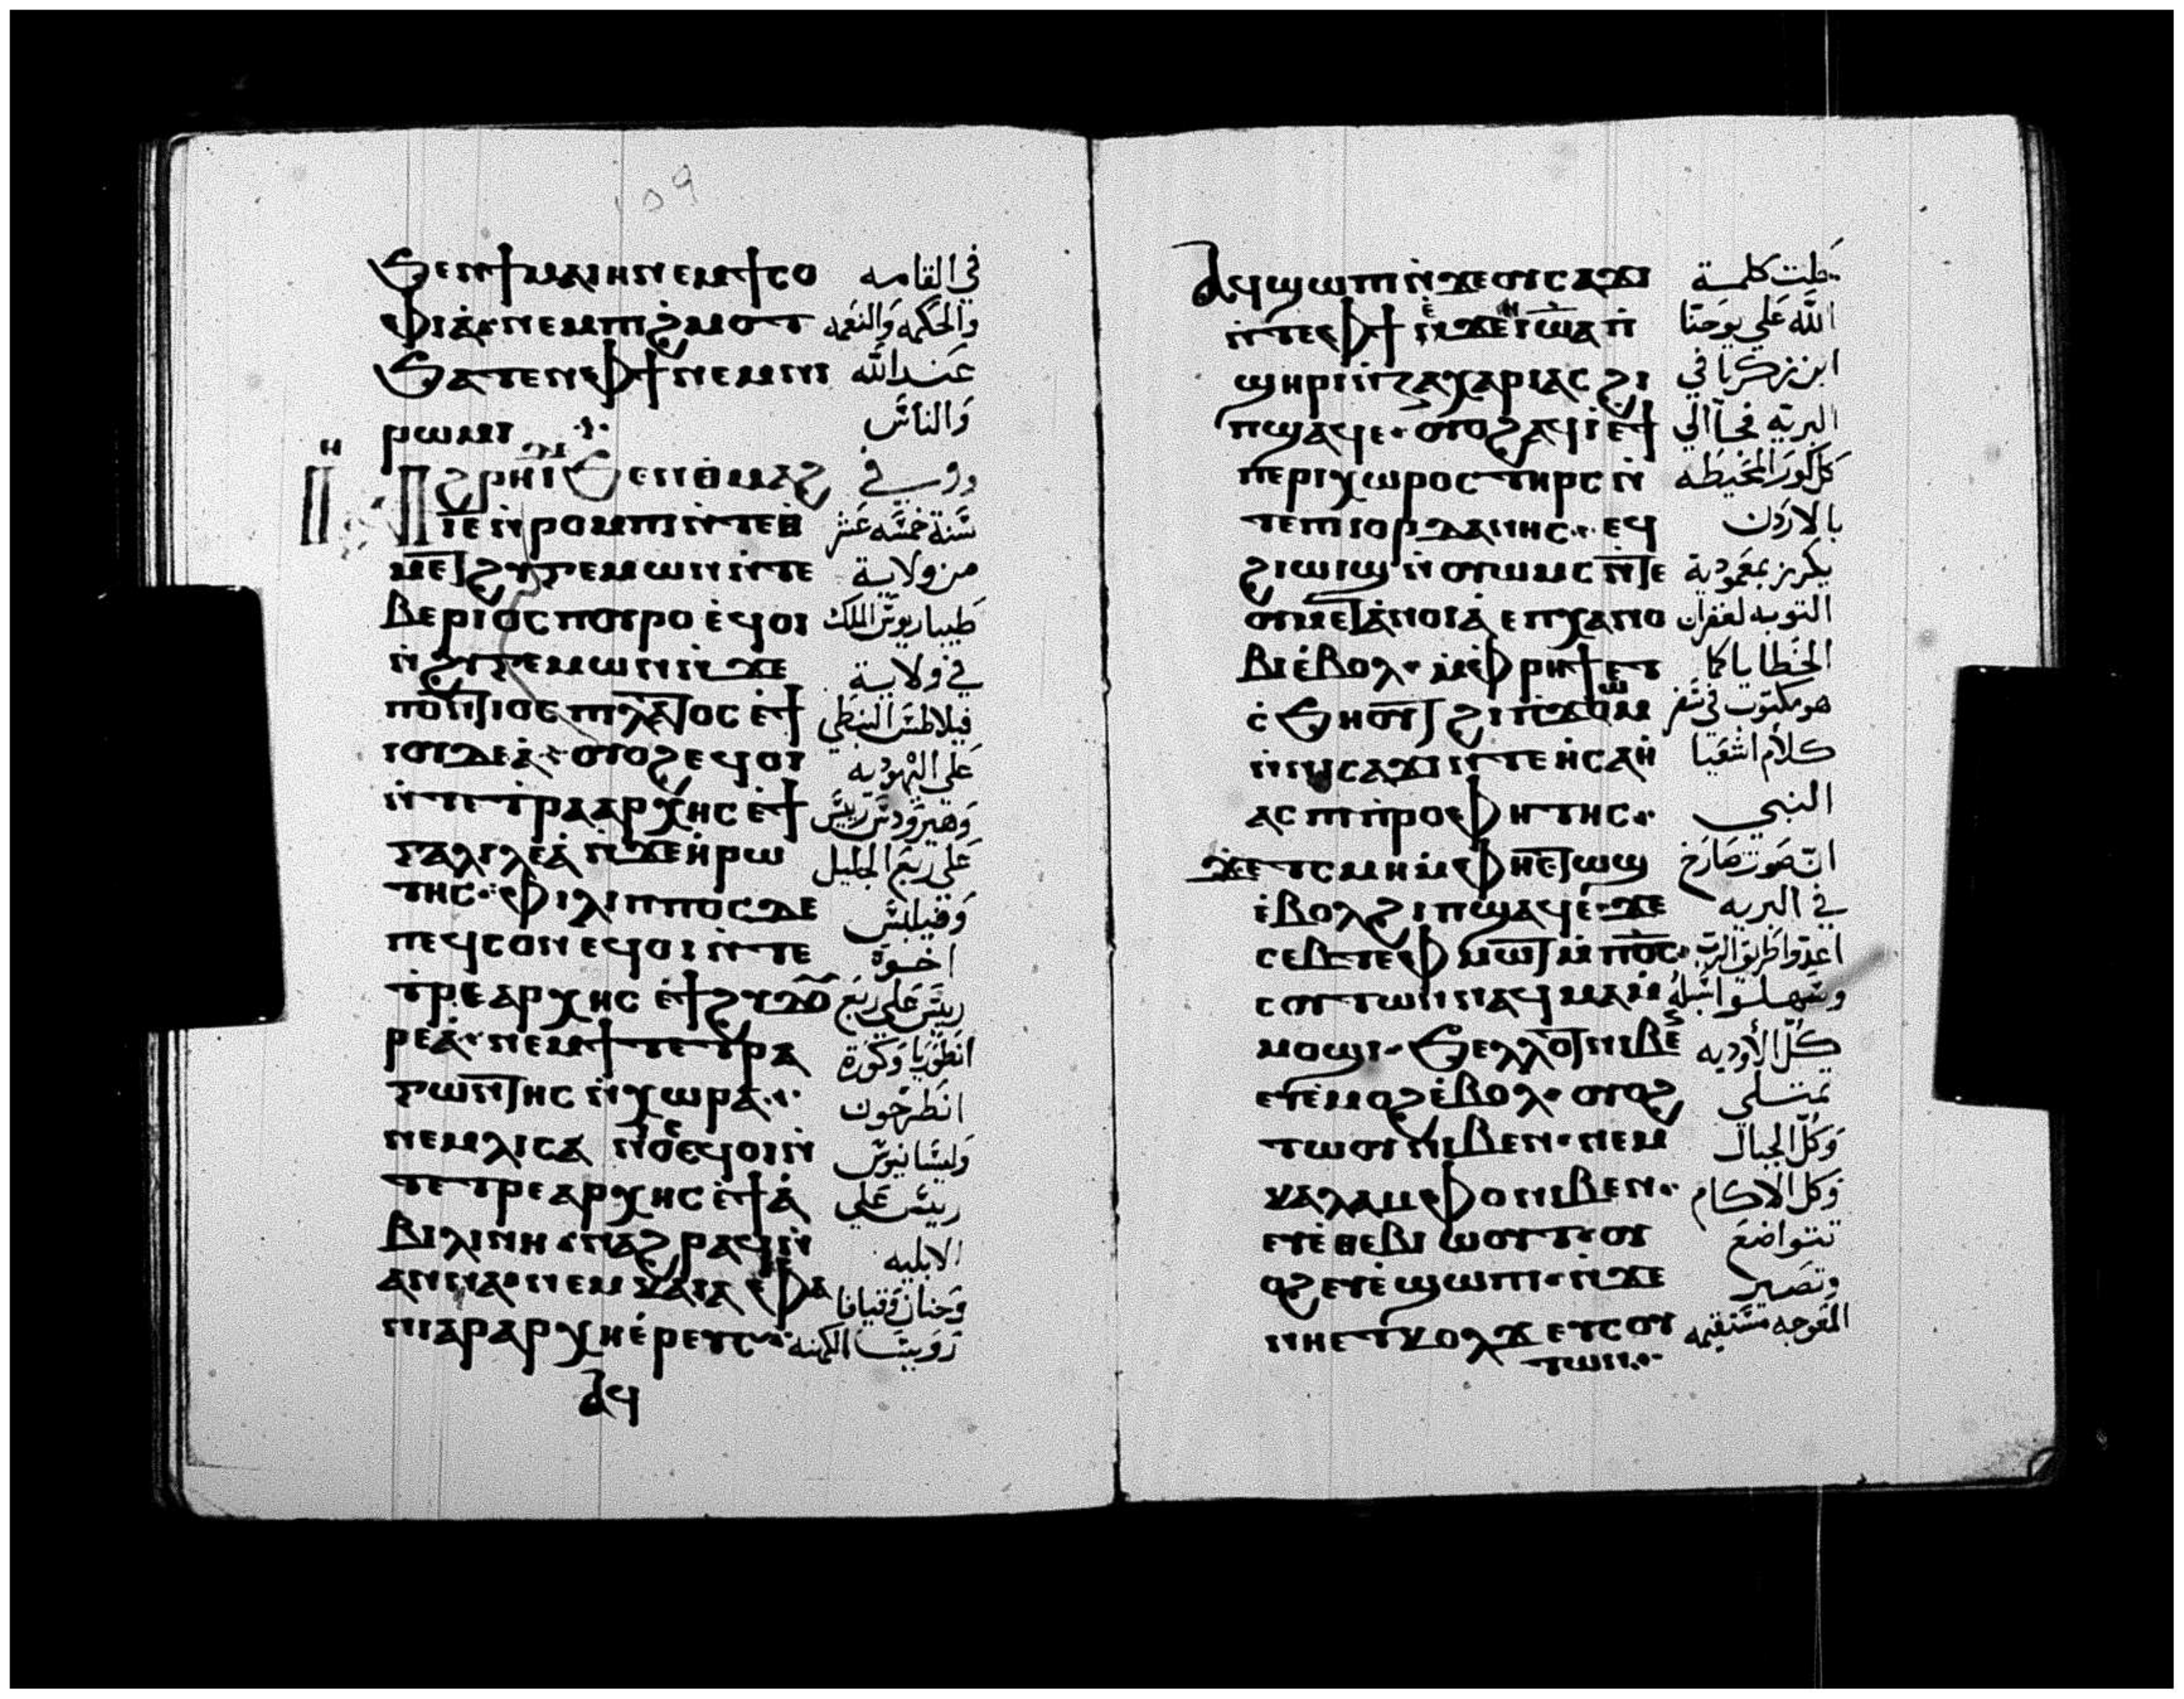 ϧⲉⲛϯⲙⲁⲓⲏⲛⲉⲙϯⲥⲟ في القامه
ⲫⲓⲁ̀ⲛⲉⲙⲡⲓϩ̀ⲙⲟⲧ والحكمه والنعمه
ϧⲁⲧⲉⲛⲫϯⲛⲉⲙⲛⲓ عند الله
ⲣⲱⲙⲓ والناس
ϩⲣⲏⲓϧⲉⲛⲑⲙⲁϩ وفي
ⲓⲉ ⲛ̀ⲣⲟⲙⲡⲓⲛ̀ⲧⲉ سنة خمسه عشر
ⲙⲉⲧϩⲩⲅⲉⲙⲱⲛⲛ̀ⲧⲉ من ولاية
ⲃⲉⲣⲓⲟⲥⲡⲟⲩⲣⲟ ⲉ̀ϥⲟⲓ طيباريوس الملك
ⲛ̀ϩⲩⲅⲉⲙⲱⲛⲛ̀ϫⲉ في ولاية
ⲡⲟⲛⲧⲓⲟⲥⲡⲓⲗⲁⲧⲟⲥ ⲉ̀ϯ فيلاطس النبطي
ⲓⲟⲩⲇⲉⲁ̀ ⲟⲩⲟϩⲉϥⲟⲓ على اليهوديه
ⲛ̀ⲧⲉⲧⲣⲁⲁⲣⲭⲏⲥ ⲉ̀ϯ وهيرودس رييس
ⲅⲁⲗⲓⲗⲉⲁ̀ ⲛ̀ϫⲉⲏ̀ⲣⲱ على ربع الجليل
ⲧⲏⲥ ⲫⲓⲗⲓⲡⲡⲟⲥⲇⲉ وفيلبس
ⲡⲉϥⲥⲟⲛ ⲉϥⲟⲓ ⲛ̀ⲧⲉ اخوة
ⲧⲣⲉⲁⲣⲭⲏⲥ ⲉ̀ϯ رييس على ربع
ⲣⲉⲁ̀ ⲛⲉⲙϯⲧⲉⲧⲣⲁ انطوريا وكورة
ⲅⲱⲛⲓⲧⲏⲥ ⲛ̀ⲭⲱⲣⲁ انطرخون
ⲛⲉⲙⲗⲓⲥⲁ ⲛⲟⲥⲉϥⲟⲓⲛ̀ وليسانيوس
ⲧⲉⲧⲣⲉⲁⲣⲭⲏⲥ ⲉ̀ϯⲁ̀ رييس على
ⲃⲓⲗⲓⲛⲏ ⲛⲁϩⲣⲁϥⲛ̀ الابليه
ⲁⲛⲛⲁ ⲛⲉⲙ ⲕⲁⲓⲁⲫⲁ وحنان وقيافا
ⲛⲓⲁⲣⲁⲣⲭⲏⲉ̀ⲣⲉⲩⲥ روييسا الكهنه
ⲁϥ
ⲁϥϣⲱⲡⲓ ⲛ̀ϫⲉⲟⲩⲥⲁϫⲓ حلت كلمة
ⲛ̀ⲧⲉⲫϯ الله على يوحنا
ϣⲏⲣⲓ ⲛ̀ⲍⲁⲭⲁⲣⲓⲁⲥ ϩⲓ ابن زكريا في
ⲡϣⲁϥⲉ ⲟⲩⲟϩⲁϥⲓ̀ⲉ̀ϯ البريه فجا الى
ⲡⲉⲣⲓⲭⲱⲣⲟⲥ ⲧⲏⲣⲥ ⲛ̀ كل كور المحيطه
ⲧⲉⲡⲓⲟⲣⲇⲁⲛⲏⲥ ⲉϥ بالاردن
ϩⲓⲱⲓϣ ⲛ̀ⲟⲩⲱⲙⲥ ⲛ̀ⲧⲉ يكرز بمعمودية
ⲟⲩⲙⲉⲧⲁ̀ⲛⲟⲓⲁ̀ ⲉⲡⲭⲁⲛⲟ التوبه لغفران
ⲃⲓ ⲉ̀ⲃⲟⲗ ⲙ̀ⲫⲣⲏϯⲉⲧ الخطايا كما
ⲥ̀ϧⲏⲟⲩⲧ ϩⲓⲡϫⲱⲙ هو مكتوب في سفر
ⲛ̀ⲛⲓⲥⲁϫⲓ ⲛ̀ⲧⲉⲏ̀ⲥⲁⲏ̀ كلام اشعيا
ⲁⲥ ⲡⲓⲡⲣⲟⲫⲏⲧⲏⲥ النبي
ϫⲉⲧⲥⲙⲏ ⲙ̀ⲫⲏⲉⲧⲱϣ ان صوت صارخ
ⲉ̀ⲃⲟⲗϩⲓⲡϣⲁϥⲉ ϫⲉ في البريه
ⲥⲉⲃⲧⲉⲫⲙⲱⲓⲧ ⲙ̀ⲡϭⲟⲥ اعدوا طريق الرب
ⲥⲟⲩⲧⲱⲛ ⲛⲓⲁϥⲙⲁⲙ̀ وسهلوا سبله
ⲙⲟϣⲓ ϧⲉⲗⲗⲟⲧⲛⲓⲃⲉⲛ كل الأوديه
ⲉⲩⲉ̀ⲙⲟϩⲉ̀ⲃⲟⲗ ⲟⲩⲟϩ تمتلي
ⲧⲱⲟⲩ ⲛⲓⲃⲉⲛ ⲛⲉⲙ وكل الجبال
ⲕⲁⲗⲁⲙⲫⲟ ⲛⲓⲃⲉⲛ وكل الاكام
ⲉⲩⲉ̀ⲑⲉⲃⲓⲱⲟⲩⲧ ⲟⲩ تتواضع
ⲟϩ ⲉⲩⲉ̀ϣⲱⲡⲓ ⲛ̀ϫⲉ وتصير
ⲛⲏⲉⲧⲕⲟⲗϫ ⲉⲩⲥⲟⲩ المعوجه مستقيمه
ⲧⲱⲛ